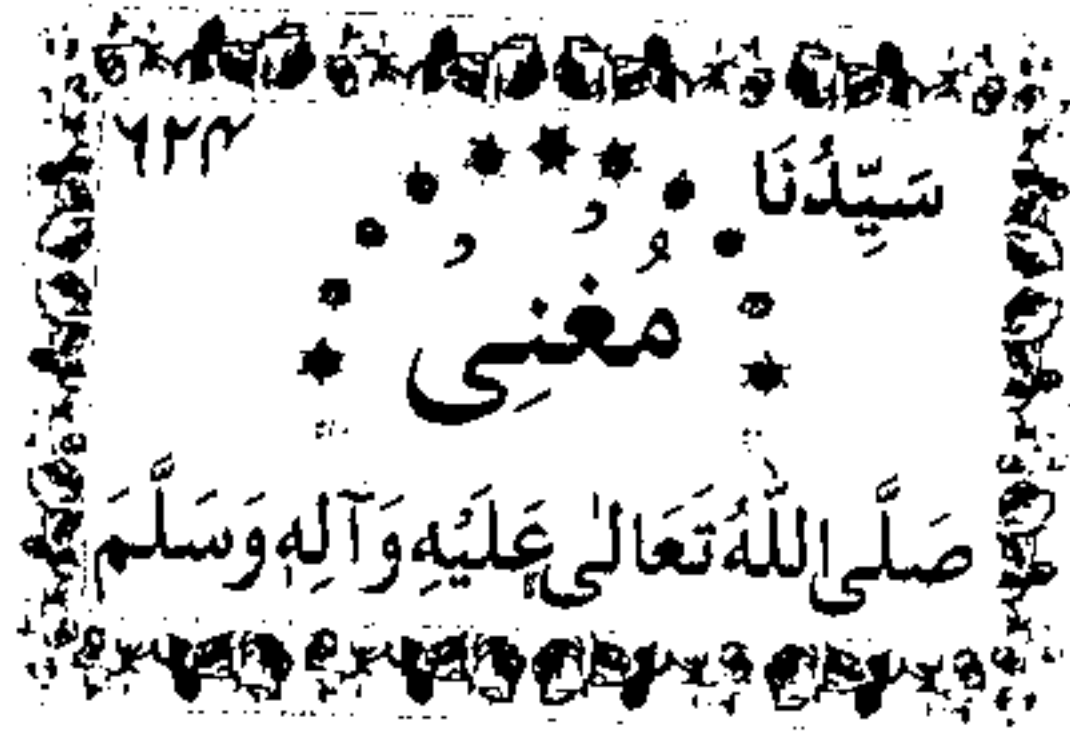 سَيِّدُنَا ۶۲۴
مُغْنِى
صَلَّى اللّٰهُ تَعَالٰى عَلَيْهِ وَآلِهٖ وَسَلَّمَ